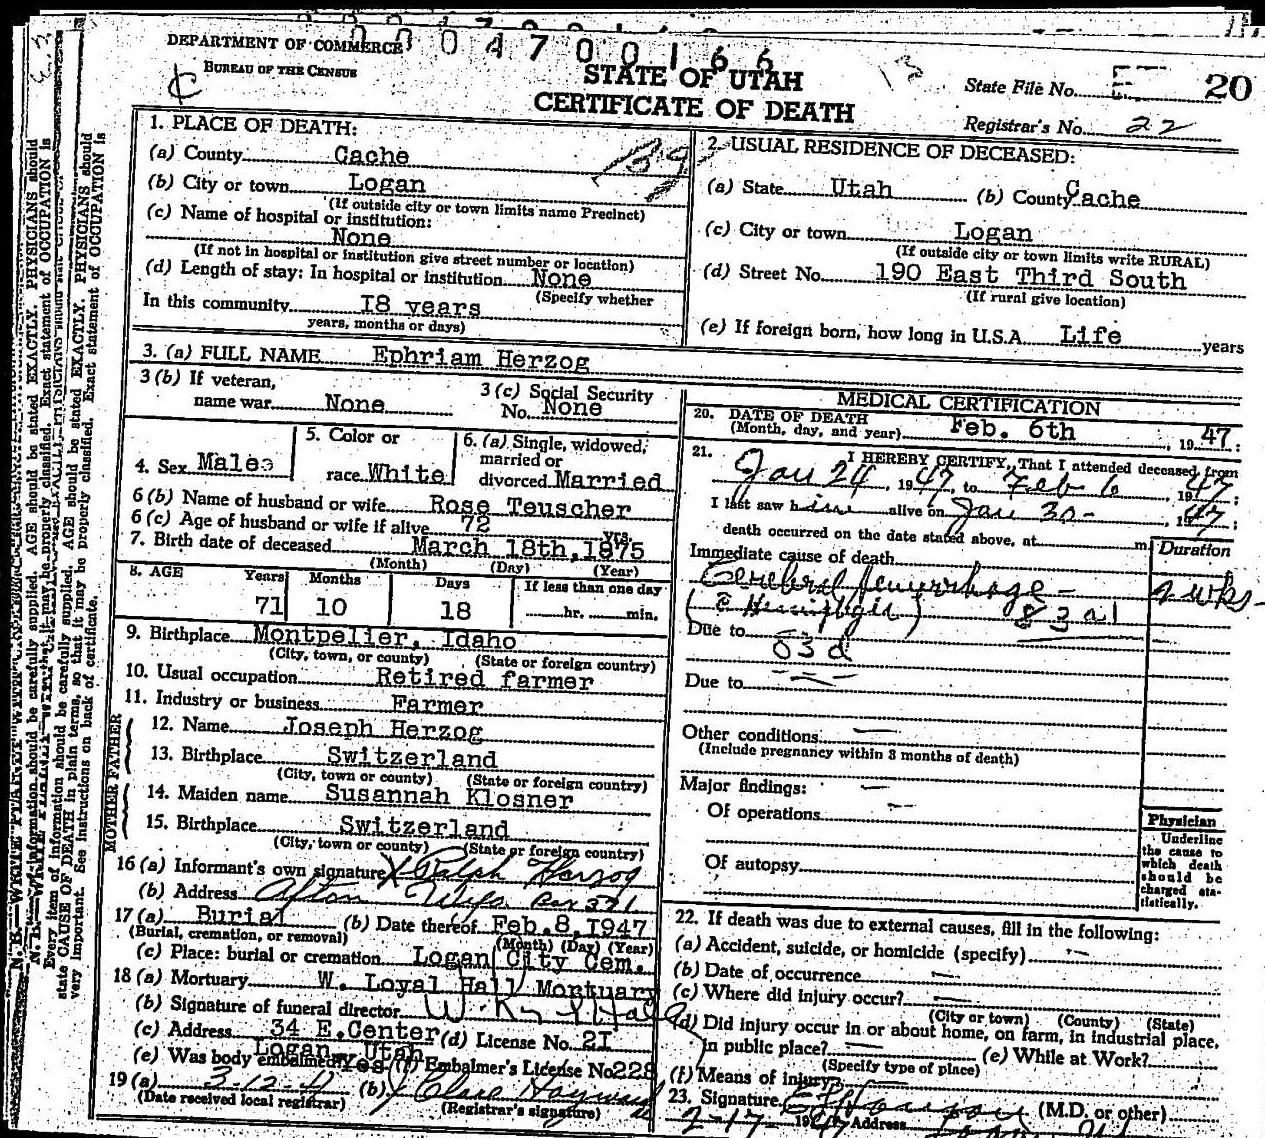 0 0 0 4 7 0 0 1 6 6
DEPARTMENT OF COMMERCE
BUREAU OF THE CENSUS
STATE OF UTAH
CERTIFICATE OF DEATH
State File No. 20
Registrar's No. 22
1. PLACE OF DEATH:
(a) County Cache
(b) City or town Logan
(If outside city or town limits name Precinct)
(c) Name of hospital or institution:
None
(If not in hospital or institution give street number or location)
(d) Length of stay: In hospital or institution None
(Specify whether
In this community 18 years
years, months or days)
2. USUAL RESIDENCE OF DECEASED:
(a) State Utah (b) County Cache
(c) City or town Logan
(If outside city or town limits write RURAL)
(d) Street No. 190 East Third South
(If rural give location)
(e) If foreign born, how long in U.S.A. Life years
3. (a) FULL NAME Ephriam Herzog
3 (b) If veteran,
name war None
3 (c) Social Security
No. None
4. Sex Male
5. Color or
race White
6. (a) Single, widowed,
married or
divorced Married
6 (b) Name of husband or wife Rose Teuscher
6 (c) Age of husband or wife if alive 72 yrs.
7. Birth date of deceased March 18th, 1875
(Month) (Day) (Year)
8. AGE Years Months Days If less than one day
71 10 18 hr. min.
9. Birthplace Montpelier, Idaho
(City, town, or county) (State or foreign country)
10. Usual occupation Retired farmer
11. Industry or business Farmer
FATHER
12. Name Joseph Herzog
13. Birthplace Switzerland
(City, town or county) (State or foreign country)
MOTHER
14. Maiden name Susannah Klosner
15. Birthplace Switzerland
(City, town or county) (State or foreign country)
16 (a) Informant's own signature X Ralph Herzog
(b) Address Afton Wyo. Box 321
17 (a) Burial (b) Date thereof Feb. 8, 1947
(Burial, cremation, or removal) (Month) (Day) (Year)
(c) Place: burial or cremation Logan City Cem.
18 (a) Mortuary W. Loyal Hall Mortuary
(b) Signature of funeral director W. Hall
(c) Address 34 E. Center (d) License No. 21
Logan, Utah
(e) Was body embalmed Yes (f) Embalmer's License No 228
19 (a) 3-12-47 (b)
(Date received local registrar) (Registrar's signature)
MEDICAL CERTIFICATION
20. DATE OF DEATH
(Month, day, and year) Feb. 6th, 1947:
21. I HEREBY CERTIFY, That I attended deceased from
Jan 24, 1947, to Feb 6, 1947;
I last saw him alive on Jan 30-, 1947;
death occurred on the date stated above, at m
Duration
Immediate cause of death
Cerebral hemurrhage - 2 wks-
83a1
Due to
83d
Due to
Other conditions
(Include pregnancy within 3 months of death)
Major findings:
Of operations
Of autopsy
Physician
Underline
the cause to
which death
should be
charged sta-
tistically.
22. If death was due to external causes, fill in the following:
(a) Accident, suicide, or homicide (specify)
(b) Date of occurrence
(c) Where did injury occur?
(City or town) (County) (State)
(d) Did injury occur in or about home, on farm, in industrial place,
in public place? (e) While at Work?
(Specify type of place)
(f) Means of injury
23. Signature (M.D. or other)
2-17 1947 Address